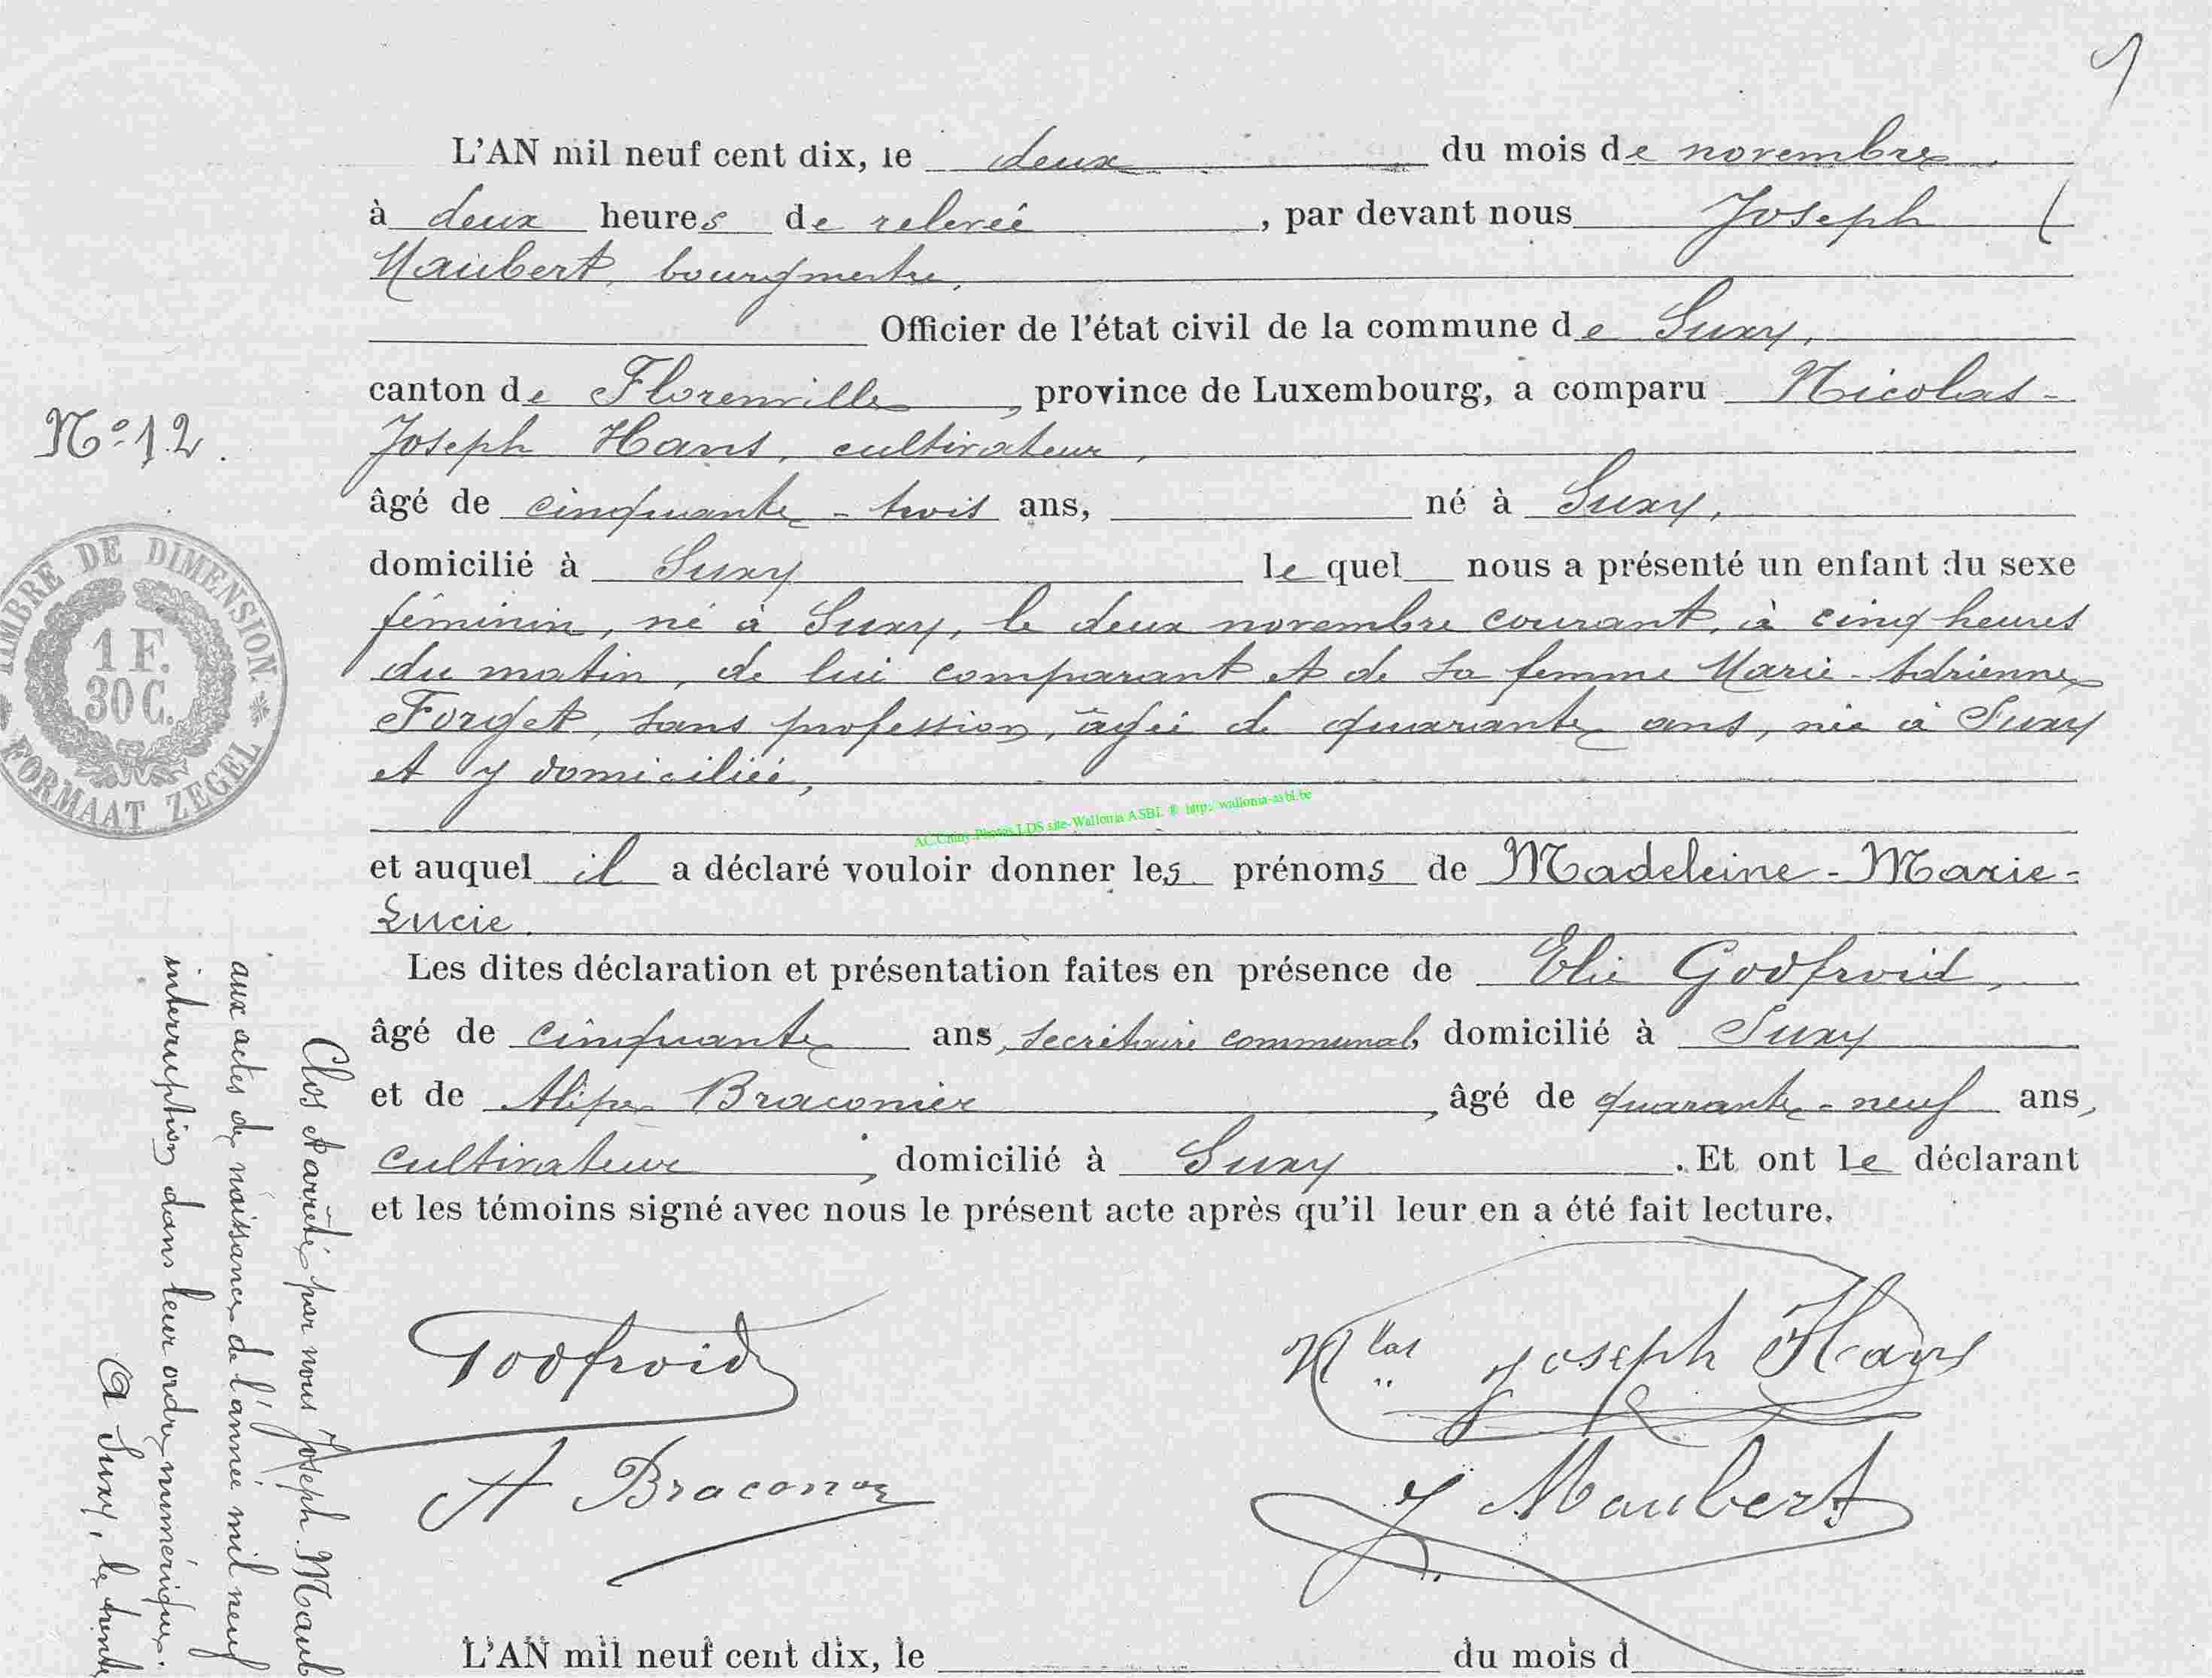 L'AN mil neuf cent dix, le deux du mois de novembre
à deux heures de relevée, par devant nous Joseph
Maubert, bourgmestre,
Officier de l'état civil de la commune de Suxy,
canton de Florenville, province de Luxembourg, a comparu Nicolas-
Joseph Hans, cultivateur,
N° 12.
âgé de cinquante-trois ans, né à Suxy,
domicilié à Suxy lequel nous a présenté un enfant du sexe
féminin, né à Suxy, le deux novembre courant, à cinq heures
du matin, de lui comparant et de sa femme Marie-Adrienne
Forget, sans profession, âgée de quarante ans, née à Suxy
et y domiciliée,
TIMBRE DE DIMENSION
1 F.
30 C.
FORMAAT ZEGEL
AC Chiny-Photos LDS site-Wallonia ASBL © http://wallonia-asbl.be
et auquel il a déclaré vouloir donner les prénoms de Madeleine-Marie-
Lucie.
Les dites déclaration et présentation faites en présence de Elie Godfroid,
âgé de cinquante ans, secrétaire communal, domicilié à Suxy
et de Alipe Braconier, âgé de quarante-neuf ans,
cultivateur, domicilié à Suxy. Et ont le déclarant
et les témoins signé avec nous le présent acte après qu'il leur en a été fait lecture.
Godfroid
Nlas Joseph Hans
A Braconier
J Maubert
Clos et arrêté par nous Joseph Maub
aux actes de naissances de l'année mil neuf
interruption dans leur ordre numérique.
A Suxy, le trente
L'AN mil neuf cent dix, le du mois d